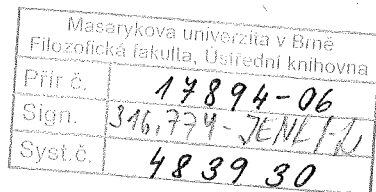 Masarykova univerzita v Brně
Filozofická fakulta, Ústřední knihovna
Přír.č. 17894-06
Sign. 316.774-JENK-1
Syst.č. 483930